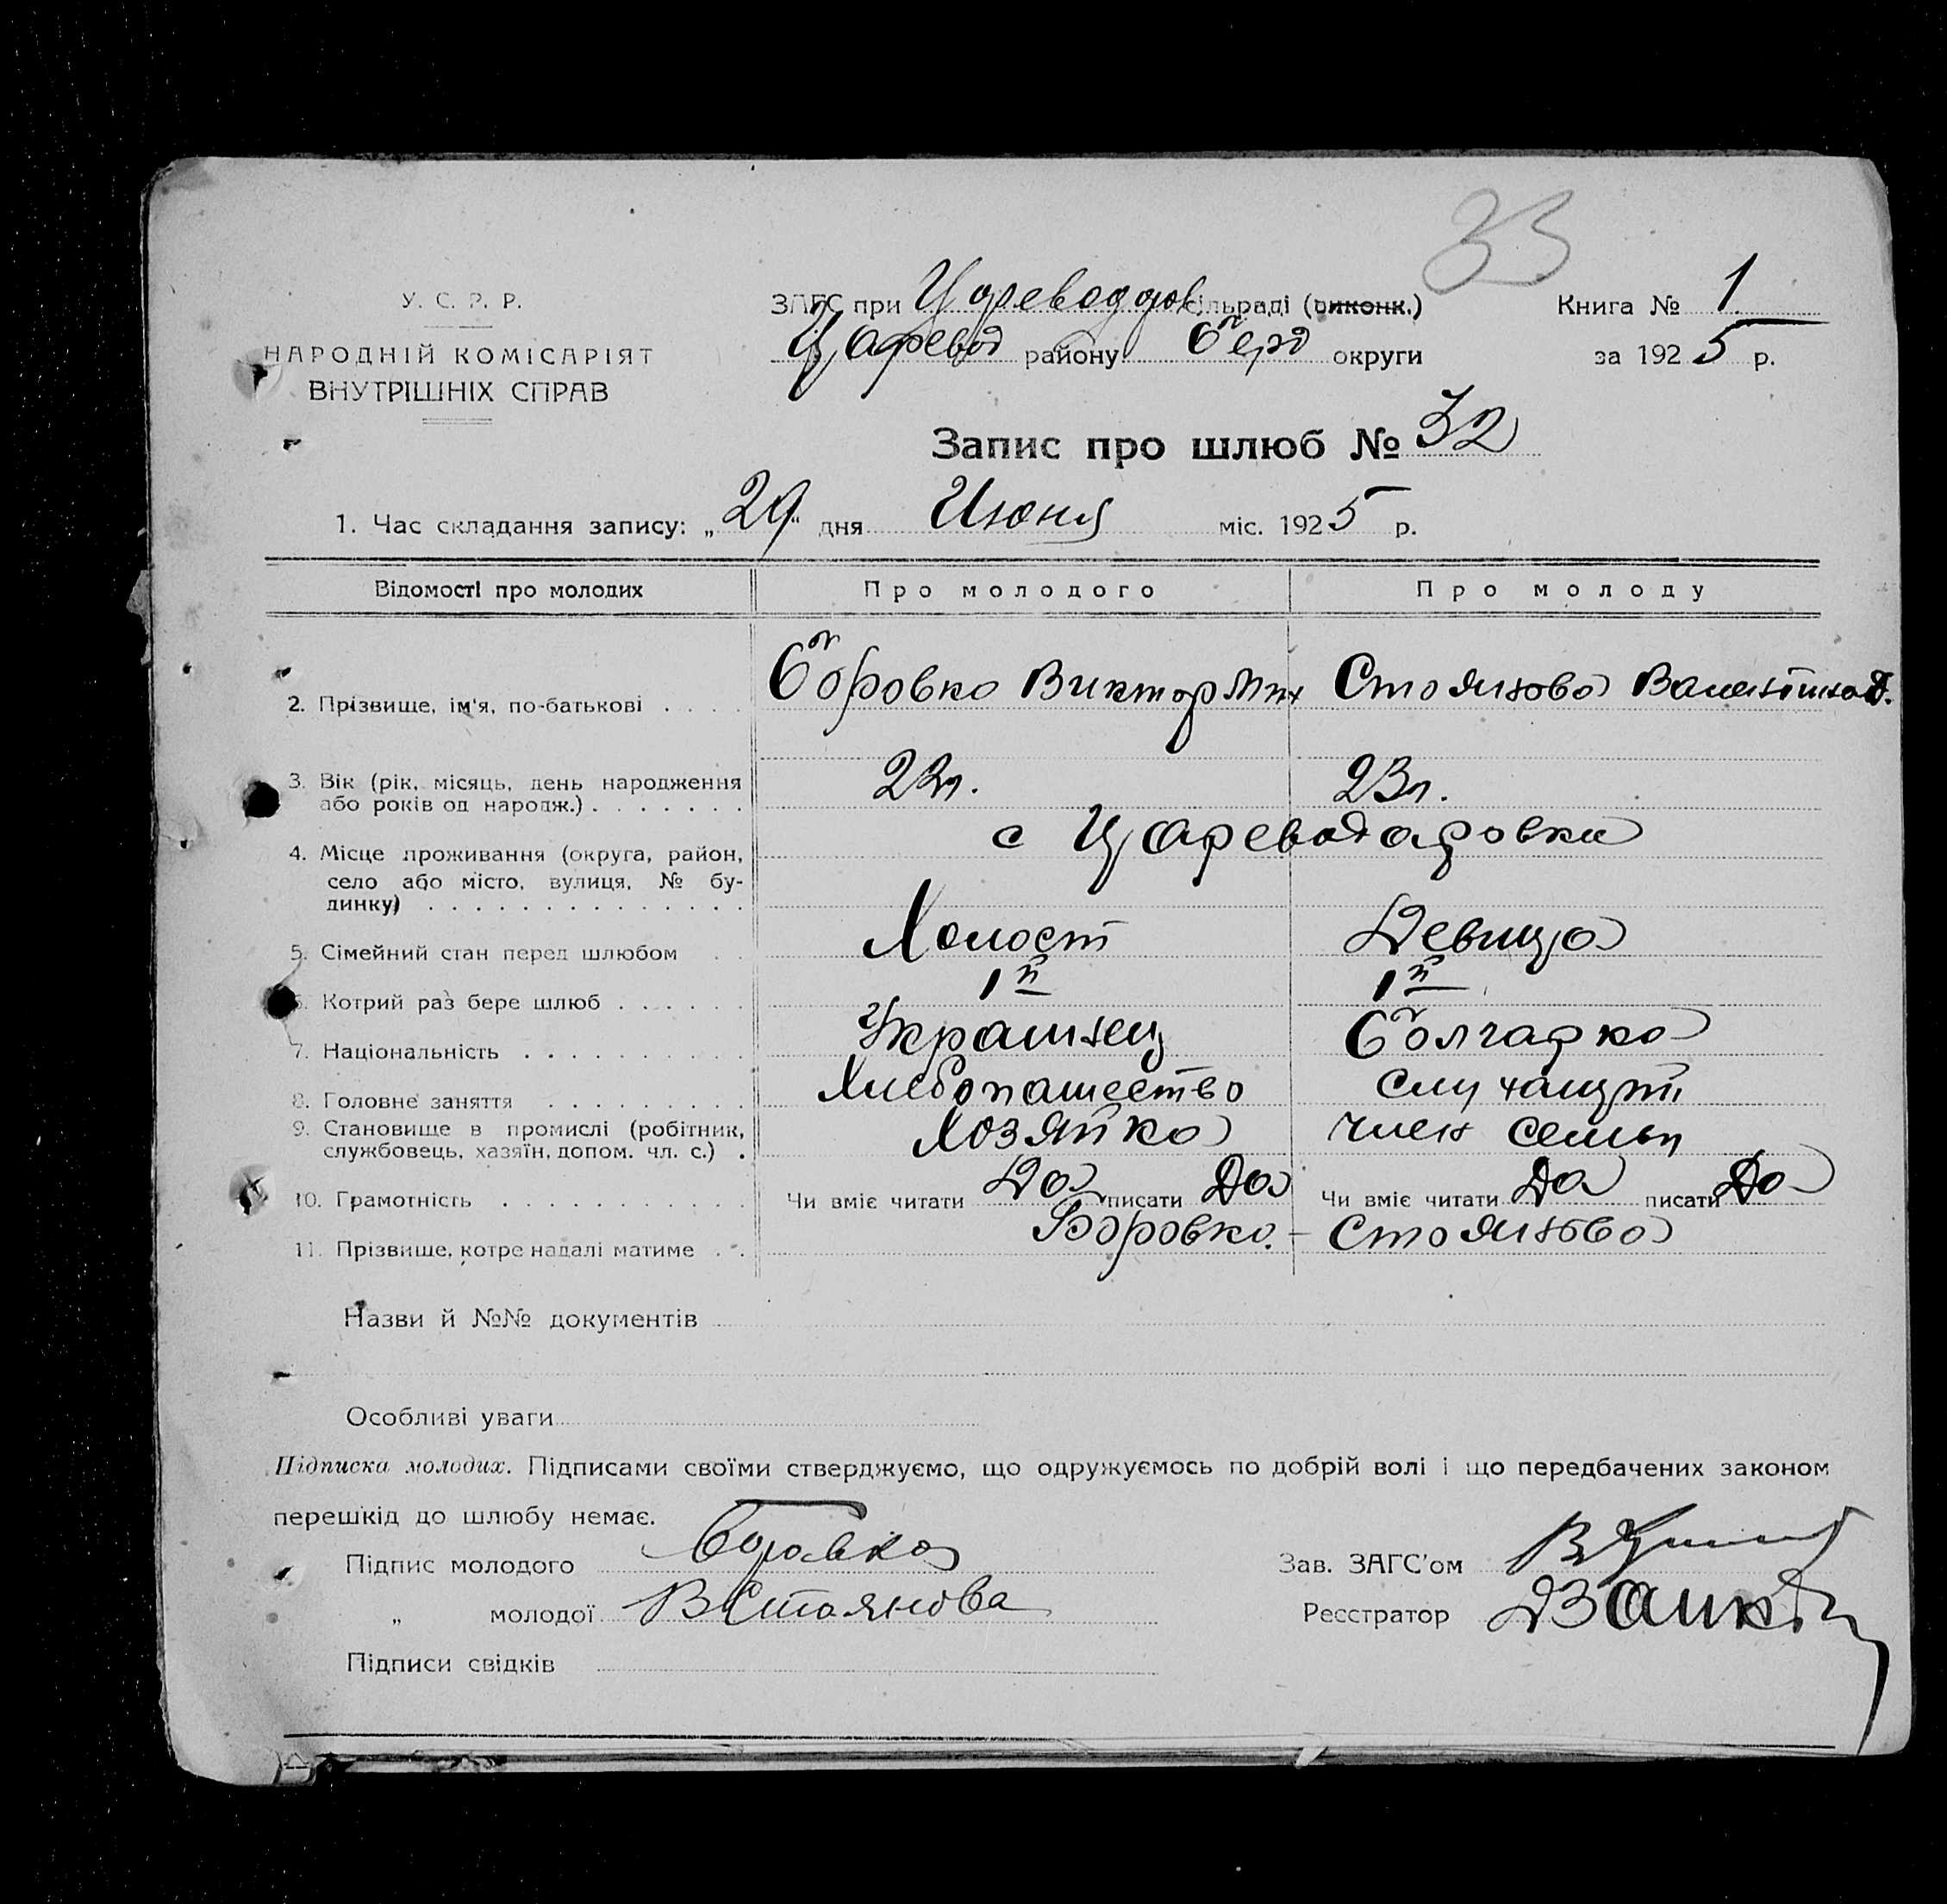 33
У. С. Р. Р.
НАРОДНІЙ КОМІСАРІЯТ
ВНУТРІШНІХ СПРАВ
ЗАГС при Цареводаров сільраді (виконк.)
Царевод району Берд округи
Книга № 1
за 1925 р.
Запис про шлюб № 32
1. Час складання запису: „29“ дня Июня міс. 1925 р.
Відомості про молодих Про молодого Про молоду
2. Прізвище, ім'я, по-батькові . . . . Боровко Виктор Мих Стоянова Валентина Д.
3. Вік (рік, місяць, день народження
або років од народж.) . . . . . . . 22л. 23л.
4. Місце проживання (округа, район, с Цареводаровки
село або місто, вулиця, № бу-
динку) . . . . . . . . . . . . . .
5. Сімейний стан перед шлюбом . . Холост Девица
6. Котрий раз бере шлюб . . . . . . 1й 1й
7. Національність . . . . . . . . . . Украинец Болгарка
8. Головне заняття . . . . . . . . . Хлебопашество
9. Становище в промислі (робітник,
службовець, хазяїн, допом. чл. с.) . Хозяйка член семьи
10. Грамотність . . . . . . . . . . . Чи вміє читати Да писати Да Чи вміє читати Да писати Да
11. Прізвище, котре надалі матиме . . Боровко. – Стоянова
Назви й №№ документів
Особливі уваги
Підписка молодих. Підписами своїми стверджуємо, що одружуємось по добрій волі і що передбачених законом
перешкід до шлюбу немає.
Підпис молодого Боровко
„ молодої ВСтоянова
Підписи свідків
Зав. ЗАГС'ом
Реєстратор